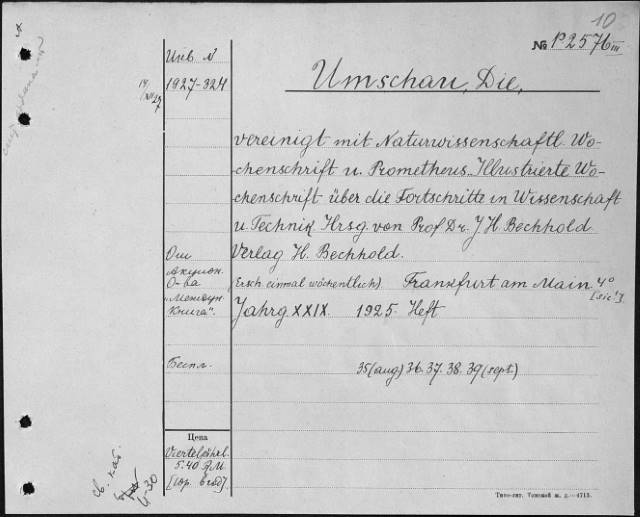 10
№ P2576 III
Инв. N
1927-324
Umschau, Die,
vereinigt mit Naturwissenschaftl. Wo-
chenschrift u. Prometheus. Illustrierte Wo-
chenschrift über die Fortschritte in Wissenschaft
u. Technik. Hrsg. von Prof. Dr. J. H. Bechhold.
Verlag H. Bechhold.
От
Акцион.
О-ва
"Междун.
Книга".
(Ersch. einmal wöchentlich). Frankfurt am Main 4°
[sic!].
Jahrg. XXIX. 1925. Heft
Беспл.
35 (aug) 36. 37. 38. 39 (sept.)
Цена
Vierteljährl.
5.40 R.M.
св. кат.
4-30
Типо-лит. Томской ж. д.—4713.